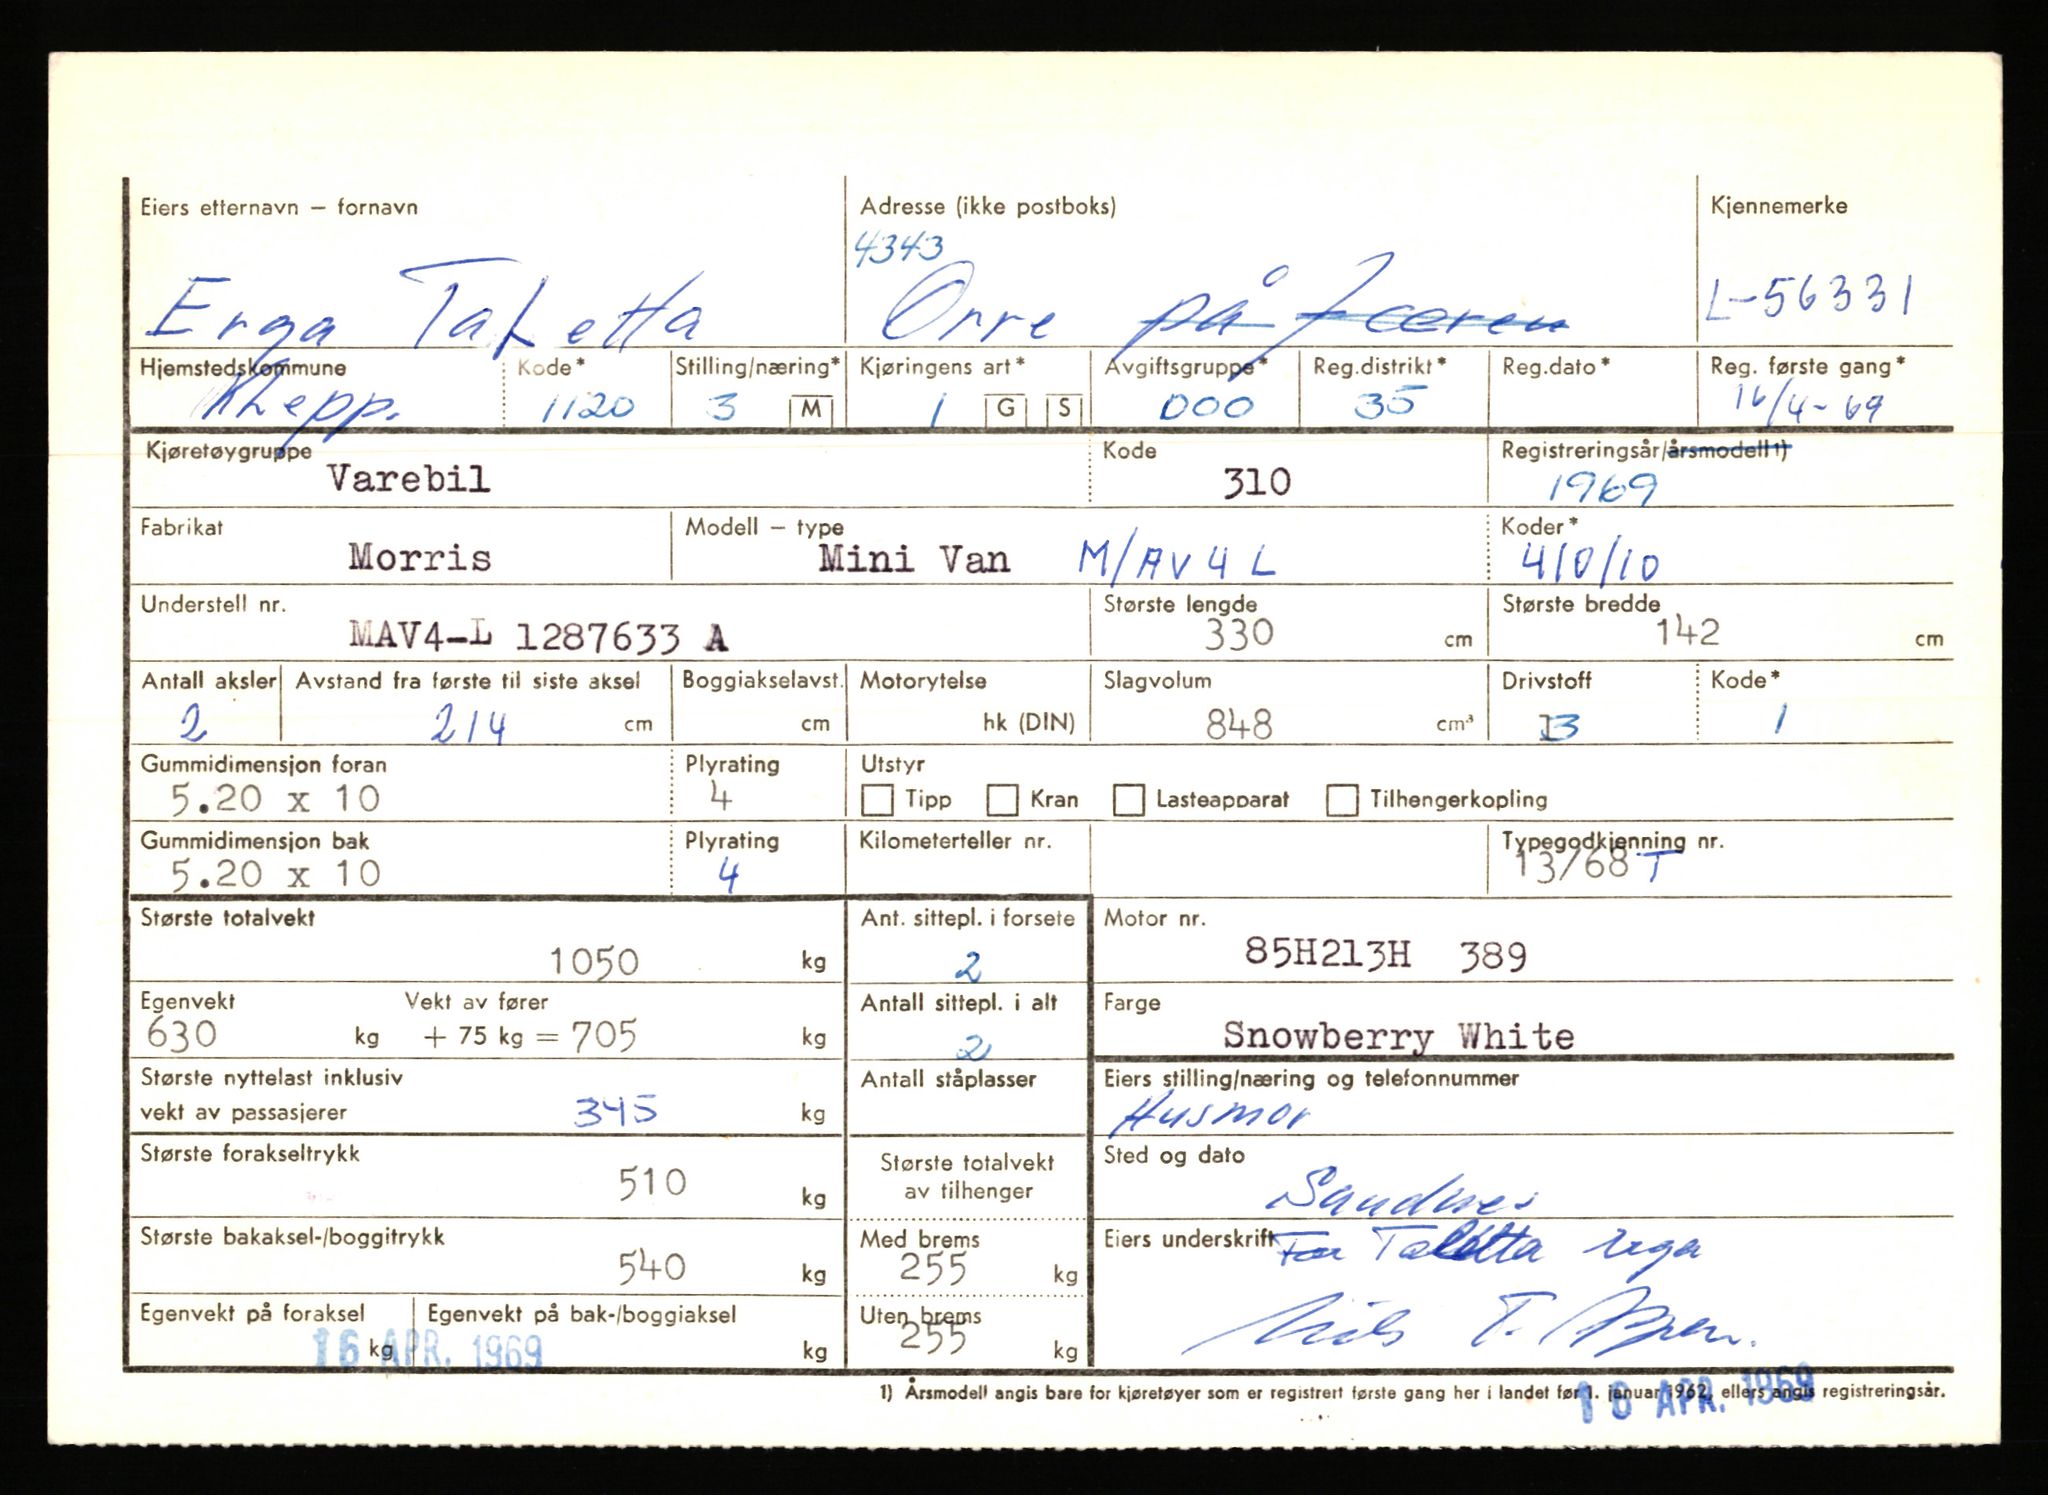 Eiers etternavn – fornavn Adresse (ikke postboks) Kjennemerke
4343
Erga Taletta Orre på Jæren L-56331
Hjemstedskommune Kode* Stilling/næring* Kjøringens art* Avgiftsgruppe* Reg.distrikt* Reg.dato* Reg. første gang*
Klepp. 1120 3 M 1 G S 000 35 16/4-69
Kjøretøygruppe Kode Registreringsår/årsmodell 1)
Varebil 310 1969
Fabrikat Modell – type Koder*
Morris Mini Van M/AV4L 410/10
Understell nr. Største lengde Største bredde
MAV4-L 1287633 A 330 cm 142 cm
Antall aksler Avstand fra første til siste aksel Boggiakselavst. Motorytelse Slagvolum Drivstoff Kode*
2 214 cm cm hk (DIN) 848 cm³ B 1
Gummidimensjon foran Plyrating Utstyr
5.20 x 10 4 Tipp Kran Lasteapparat Tilhengerkopling
Gummidimensjon bak Plyrating Kilometerteller nr. Typegodkjenning nr.
5.20 x 10 4 13/68 T
Største totalvekt Ant. sittepl. i forsete Motor nr.
1050 kg 2 85H213H 389
Egenvekt Vekt av fører Antall sittepl. i alt Farge
630 kg + 75 kg = 705 kg 2 Snowberry White
Største nyttelast inklusiv Antall ståplasser Eiers stilling/næring og telefonnummer
vekt av passasjerer 345 kg Husmor
Største forakseltrykk Største totalvekt Sted og dato
510 kg av tilhenger Sandnes
Største bakaksel-/boggitrykk Med brems Eiers underskrift For Taletta Erga
540 kg 255 kg
Egenvekt på foraksel Egenvekt på bak-/boggiaksel Uten brems Nils T.
kg 16 APR. 1969 kg 255 kg
1) Årsmodell angis bare for kjøretøyer som er registrert første gang her i landet før 1. januar 1962, ellers angis registreringsår.
16 APR. 1969